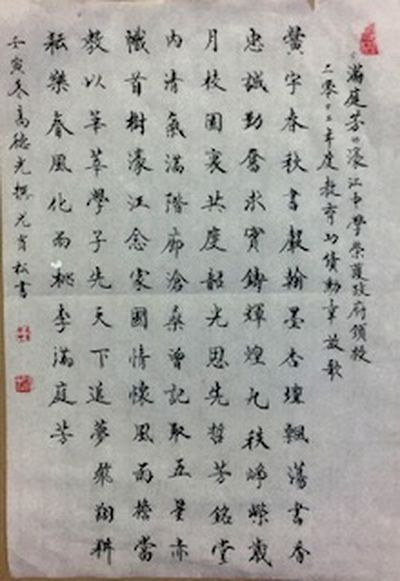 滿庭芳·濠江中學榮獲政府頒授
二零二二年度教育功績勳章放歌
黌宇春秋書聲翰墨杏壇飄蕩書香
忠誠勤奮求實鑄輝煌九秩崢嶸歲
月校園裏共度韶光思先哲芳銘堂
內清氣滿階廊滄桑曾記取五星赤
幟首樹濠江念家國情懷風雨擔當
教以莘莘學子先天下逐夢飛翔耕
耘樂春風化雨桃李滿庭芳
壬寅冬高德光撰松書